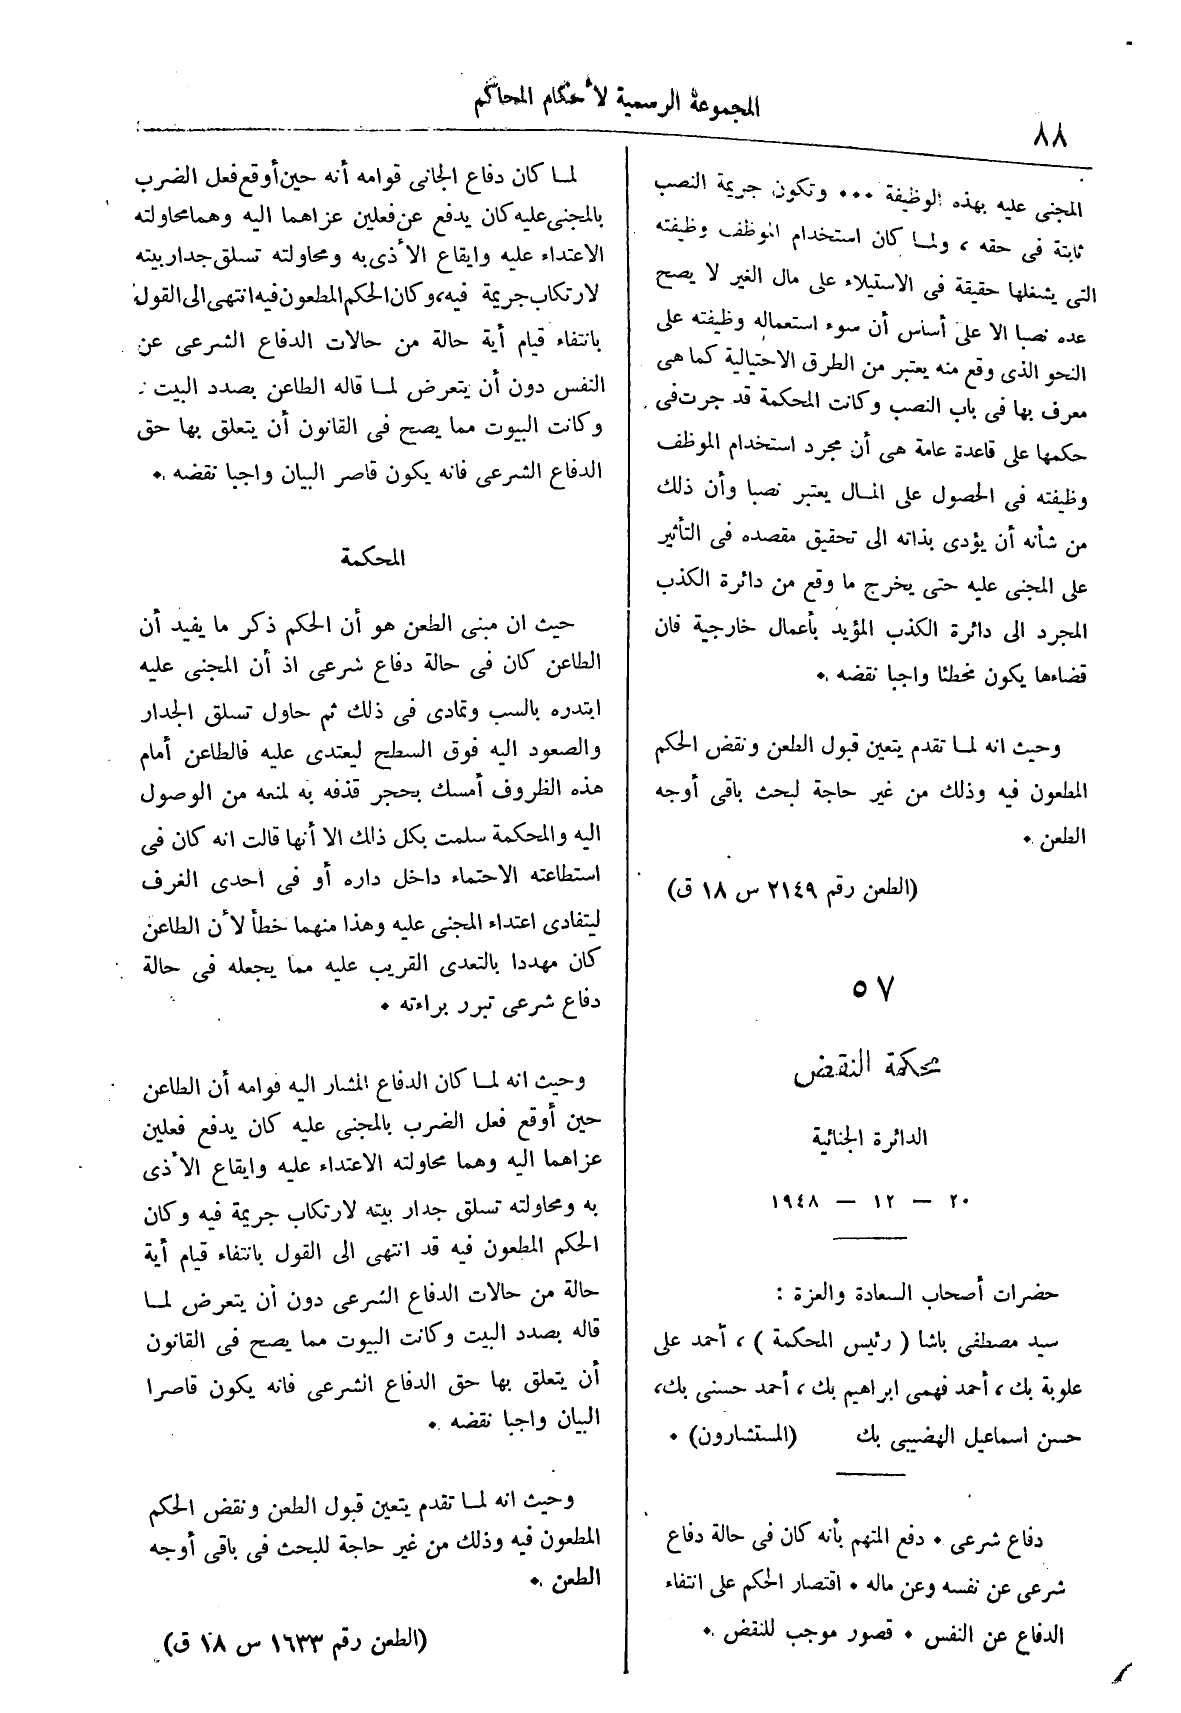 المجموعة الرسمية لأحكام المحاكم
٨٨
المجنى عليه بهذه الوظيفة ٠٠٠ وتكون جريمة النصب
ثابتة فى حقه ، ولما كان استخدام الموظف وظيفته
التى يشغلها حقيقة فى الاستيلاء على مال الغير لا يصح
عده نصبا الا على أساس أن سوء استعماله وظيفته على
النحو الذى وقع منه يعتبر من الطرق الاحتيالية كما هى
معرف بها فى باب النصب وكانت المحكمة قد جرت فى
حكمها على قاعدة عامة هى أن مجرد استخدام الموظف
وظيفته فى الحصول على المال يعتبر نصبا وأن ذلك
من شأنه أن يؤدى بذاته الى تحقيق مقصده فى التأثير
على المجنى عليه حتى يخرج ما وقع من دائرة الكذب
المجرد الى دائرة الكذب المؤيد بأعمال خارجية فان
قضاءها يكون مخطئا واجبا نقضه ٠
وحيث انه لما تقدم يتعين قبول الطعن ونقض الحكم
المطعون فيه وذلك من غير حاجة لبحث باقى أوجه
الطعن ٠
(الطعن رقم ٢١٤٩ س ١٨ ق)
٥٧
محكمة النقض
الدائرة الجنائية
٢٠ — ١٢ — ١٩٤٨
حضرات أصحاب السعادة والعزة :
سيد مصطفى باشا ( رئيس المحكمة ) ، أحمد على
علوبة بك ، أحمد فهمى ابراهيم بك ، أحمد حسنى بك،
حسن اسماعيل الهضيبى بك (المستشارون) ٠
دفاع شرعى ٠ دفع المتهم بأنه كان فى حالة دفاع
شرعى عن نفسه وعن ماله ٠ اقتصار الحكم على انتفاء
الدفاع عن النفس ٠ قصور موجب للنقض ٠
لما كان دفاع الجانى قوامه أنه حين أوقع فعل الضرب
بالمجنى عليه كان يدفع عن فعلين عزاهما اليه وهما محاولته
الاعتداء عليه وايقاع الأذى به ومحاولته تسلق جدار بيته
لارتكاب جريمة فيه، وكان الحكم المطعون فيه انتهى الى القول
بانتفاء قيام أية حالة من حالات الدفاع الشرعى عن
النفس دون أن يتعرض لما قاله الطاعن بصدد البيت
وكانت البيوت مما يصح فى القانون أن يتعلق بها حق
الدفاع الشرعى فانه يكون قاصر البيان واجبا نقضه ٠
المحكمة
حيث ان مبنى الطعن هو أن الحكم ذكر ما يفيد أن
الطاعن كان فى حالة دفاع شرعى اذ أن المجنى عليه
ابتدره بالسب وتمادى فى ذلك ثم حاول تسلق الجدار
والصعود اليه فوق السطح ليعتدى عليه فالطاعن أمام
هذه الظروف أمسك بحجر قذفه به لمنعه من الوصول
اليه والمحكمة سلمت بكل ذلك الا أنها قالت انه كان فى
استطاعته الاحتماء داخل داره أو فى احدى الغرف
ليتفادى اعتداء المجنى عليه وهذا منهما خطأ لأن الطاعن
كان مهددا بالتعدى القريب عليه مما يجعله فى حالة
دفاع شرعى تبرر براءته ٠
وحيث انه لما كان الدفاع المشار اليه قوامه أن الطاعن
حين أوقع فعل الضرب بالمجنى عليه كان يدفع فعلين
عزاهما اليه وهما محاولته الاعتداء عليه وايقاع الأذى
به ومحاولته تسلق جدار بيته لارتكاب جريمة فيه وكان
الحكم المطعون فيه قد انتهى الى القول بانتفاء قيام أية
حالة من حالات الدفاع الشرعى دون أن يتعرض لما
قاله بصدد البيت وكانت البيوت مما يصح فى القانون
أن يتعلق بها حق الدفاع الشرعى فانه يكون قاصرا
البيان واجبا نقضه ٠
وحيث انه لما تقدم يتعين قبول الطعن ونقض الحكم
المطعون فيه وذلك من غير حاجة للبحث فى باقى أوجه
الطعن ٠
(الطعن رقم ١٦٣٣ س ١٨ ق)